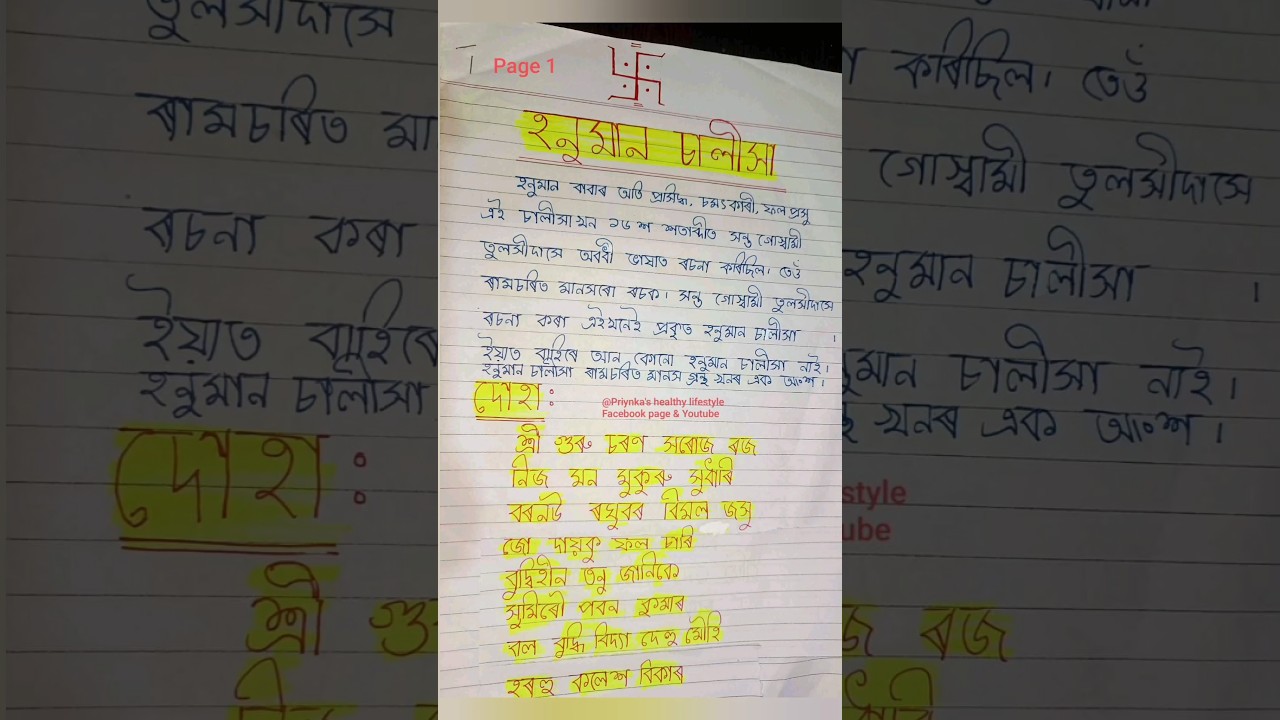 Page 1
হনুমান চালীসা
হনুমান বাবাৰ অতি প্ৰসিদ্ধ, চমৎকাৰী, ফল প্ৰসু
এই চালীসা খন ১৬ শ শতাব্দীত সন্ত গোস্বামী
তুলসীদাসে অবধী ভাষাত ৰচনা কৰিছিল। তেওঁ
ৰামচৰিত মানসৰো ৰচক। সন্ত গোস্বামী তুলসীদাসে
ৰচনা কৰা এইখনেই প্ৰকৃত হনুমান চালীসা ।
ইয়াত বাহিৰে আন কোনো হনুমান চালীসা নাই।
হনুমান চালীসা ৰামচৰিত মানস গ্ৰন্থ খনৰ এক অংশ।
দোহা:
@Priynka's healthy lifestyle
Facebook page & Youtube
শ্ৰী গুৰু চৰণ সৰোজ ৰজ
নিজ মন মুকুৰু সুধাৰি
বৰনউ ৰঘুবৰ বিমল জসু
জো দায়কু ফল চাৰি
বুদ্ধিহীন তনু জানিকে
সুমিৰৌ পবন কুমাৰ
বল বুদ্ধি বিদ্যা দেহু মৌহি
হৰহু কলেশ বিকাৰ